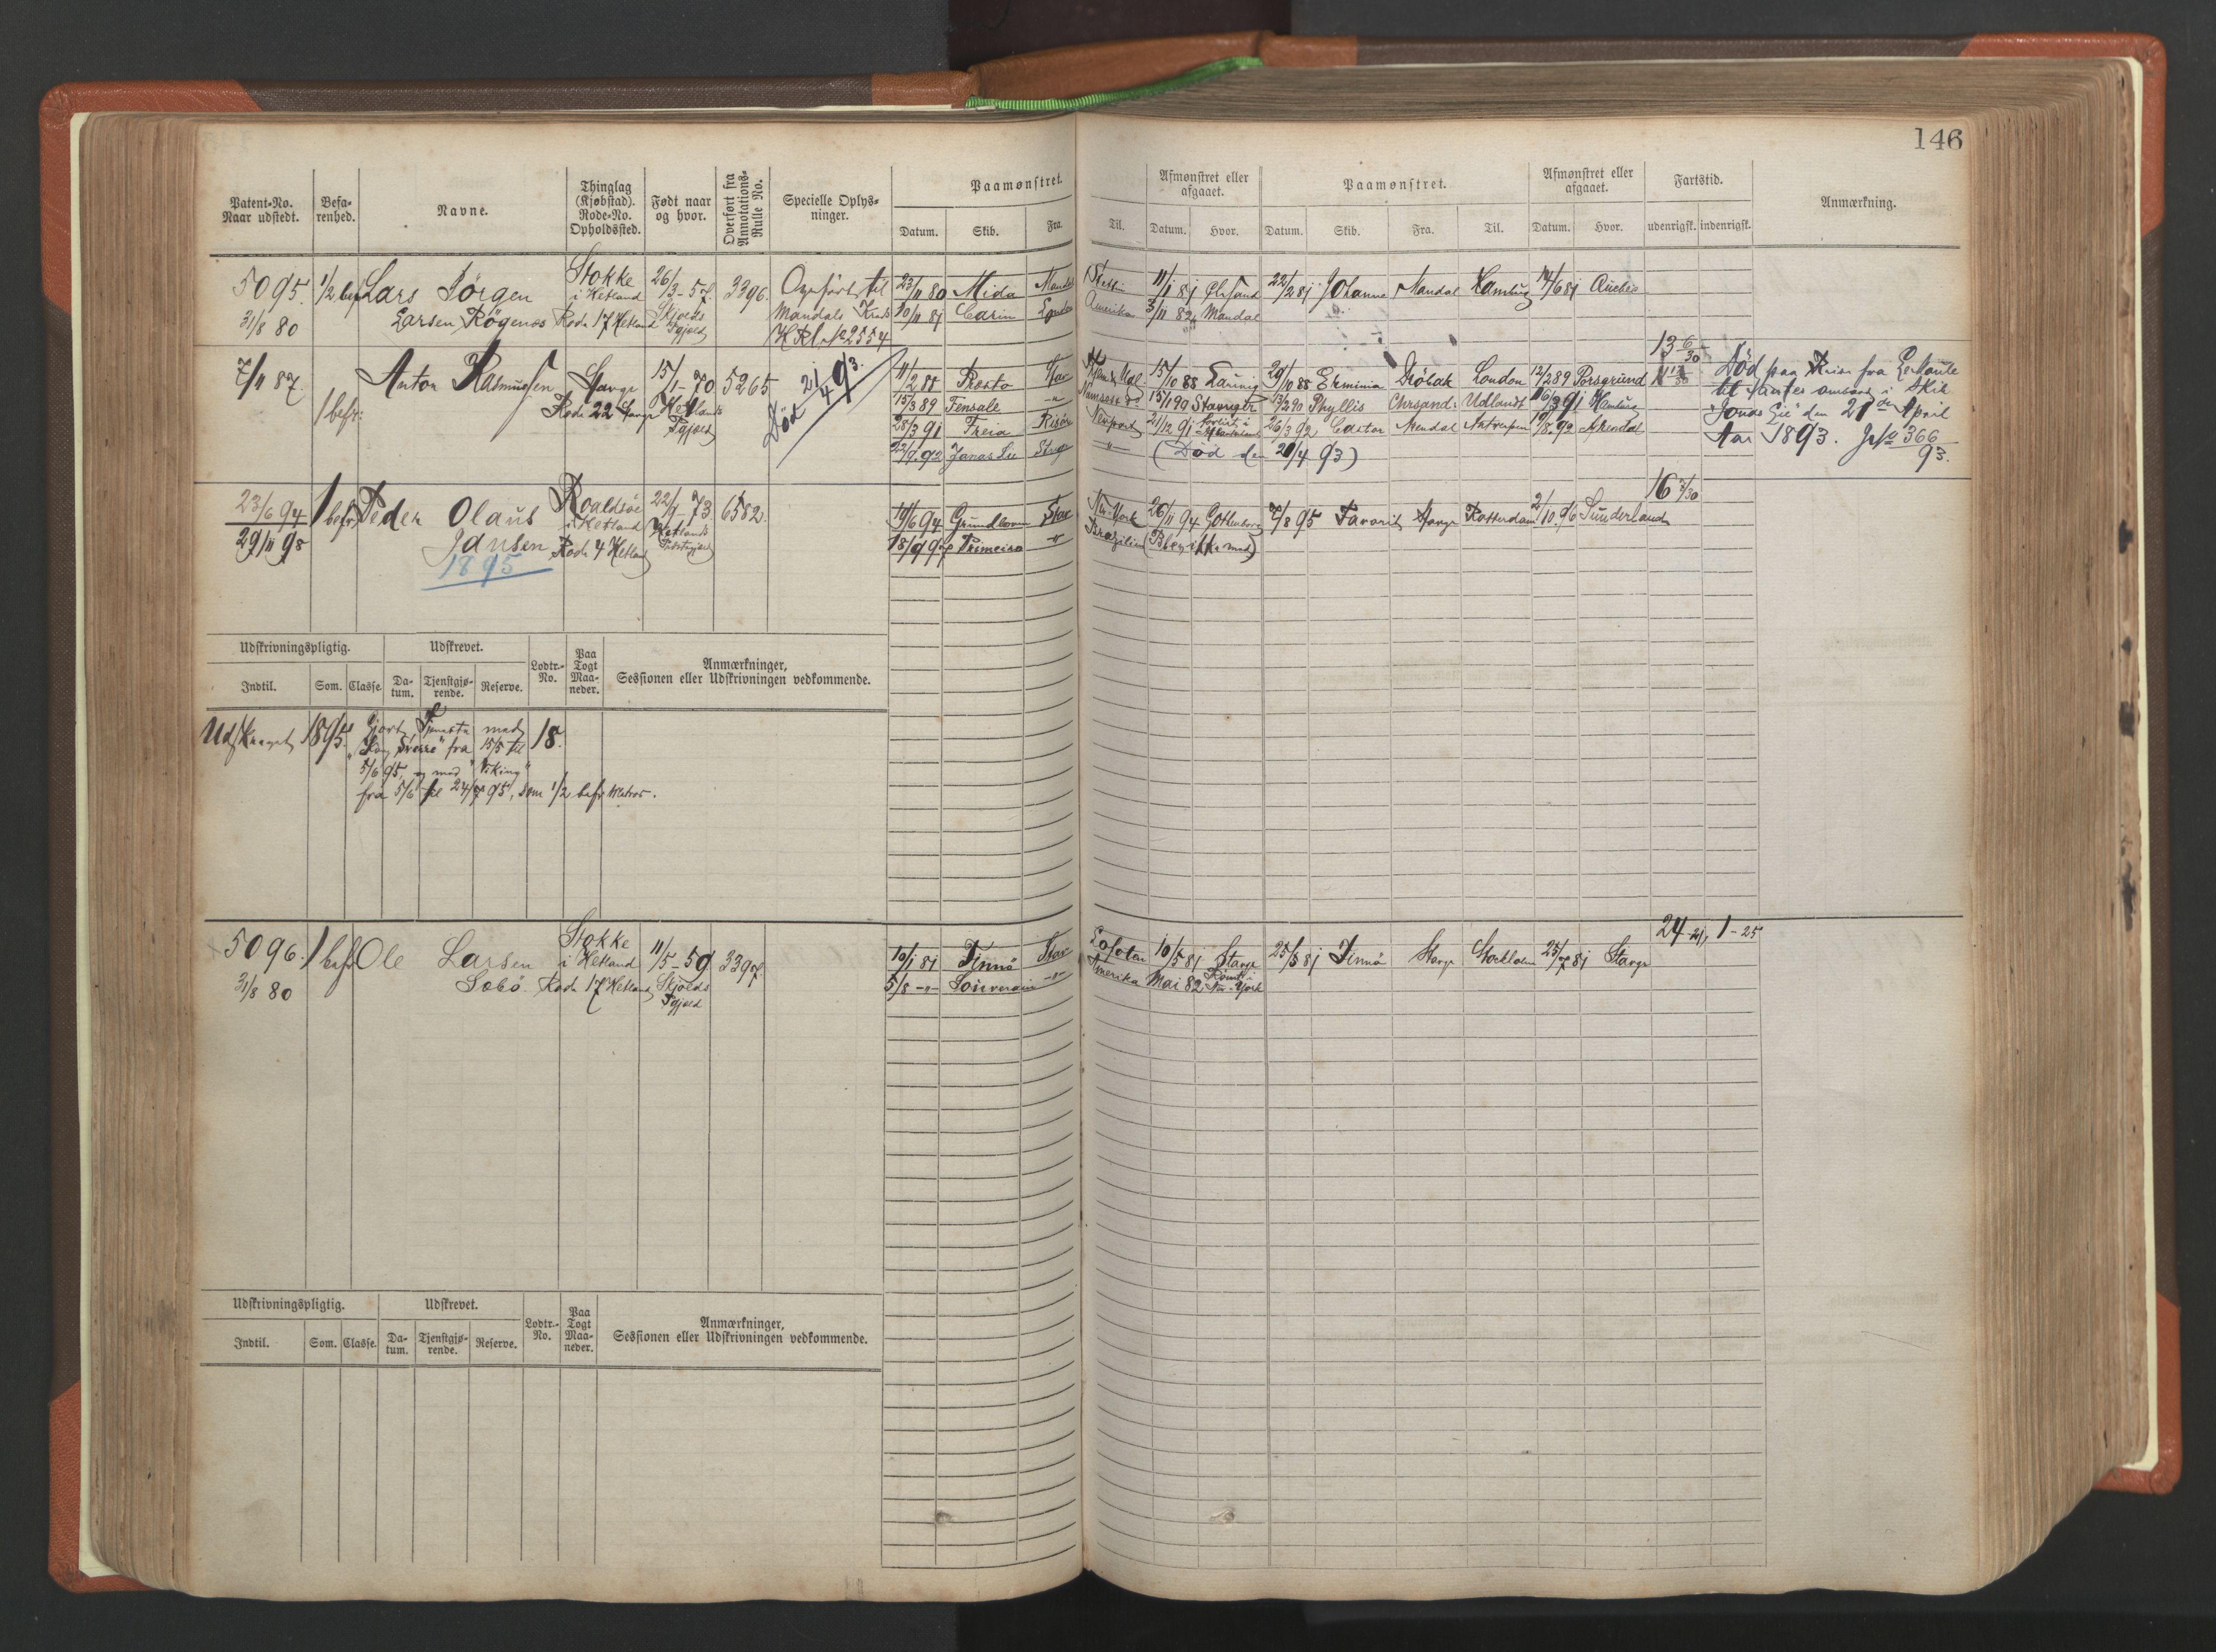 146
Patent-No. Naar udstedt.
Befarenhed.
Navne.
Thinglag (Kjøbstad). Rode-No. Opholdssted.
Født naar og hvor.
Overført fra Annotations-Rulle No.
Specielle Oplysninger.
Paamønstret.
Datum. Skib. Fra Til.
Afmønstret eller afgaaet.
Datum. Hvor.
Paamønstret.
Datum. Skib. Fra. Til.
Afmønstret eller afgaaet.
Datum. Hvor.
Fartstid.
udenrigsk. indenrigsk.
Anmærkning.
5095. 1/2 bef Lars Jörgen Stokke 26/3-57. 3396. Overfört til 23/11 80 Mida Mandal Stettin 11/1 81 22/2 81 Johanne Mandal Hamburg 14/6 81 Quebec
31/8 80 Larsen Rögenes i Hetland Rode 17 Hetland Skjolds Pgjeld Mandals Krets 10/11 81 Carin London Amerika 3/11 82 Mandal
HRl. No 2554
13 6/30
7/11 87. Anton Rasmussen Stavgr 15/1-70 5265 Död 21/4 93. 11/2 88 Presto Stav 15/10 88 29/10 88 Erminia Dröbak London 12/2 89 Porsgrund Död paa Reise fra
1 bef: Rode 22 Stavgr Hetlands Pgjeld 15/3 89 Fensale -"- 15/1 90 Stavanger 13/2 90 Phyllis Chrsand: Udlandt 16/3 91 Hamburg til ombord i Skib
28/3 91 Freia Risör Newport 21/12 91 Forlist i 26/3 92 Castor Arendal Antwerpen 19/8 92 Arendal "Jonas Lie" den 21de April
22/9 92 Jonas Lie Stvgr -"- (Död den 21/4 93) Aar 1893. JNo 366/93.
16 3/30
23/6 94 1 bef: Peder Olaus Roaldsöe 22/9 73 6582. 19/6 94 Grundloven Stav New-York 26/11 94 Gothenborg 7/8 95 Favorit Stavgr Rotterdam 2/10 96 Sunderland
29/11 98 Jansen i Hetland Rode 4 Hetland Hetlands 18/9 97 Primeira -"- Brazilien (Blev ikke med)
1895
Udskrivningspligtig.
Indtil. Som. Classe.
Udskrevet.
Datum. Tjenstgjørende. Reserve.
Lodtr.-No.
Paa Togt Maaneder.
Anmærkninger, Sessionen eller Udskrivningen vedkommende.
Udskrevet 1895. Gjort Tjeneste med 18.
"Kong Sverre" fra 15/5 til
5/6 95, og med "Viking"
fra 5/6 til 24/7 95, som 1/2 bef: Matros.
24-21, 1-25
5096. 1 bef Ole Larsen Stokke 11/5-59 3397. 10/1 81 Finnö Stav Lofoten 10/5 81 Stavgr 25/5 81 Finnö Stavgr Stockholm 25/7 81 Stavgr
31/8 80 Sebö. i Hetland Rode 17 Hetland Skjolds Pgjeld 5/8 -"- Souverain -"- Amerika Mai 82 Römt i New-York
Udskrivningspligtig.
Indtil. Som. Classe.
Udskrevet.
Datum. Tjenstgjørende. Reserve.
Lodtr.-No.
Paa Togt Maaneder.
Anmærkninger, Sessionen eller Udskrivningen vedkommende.